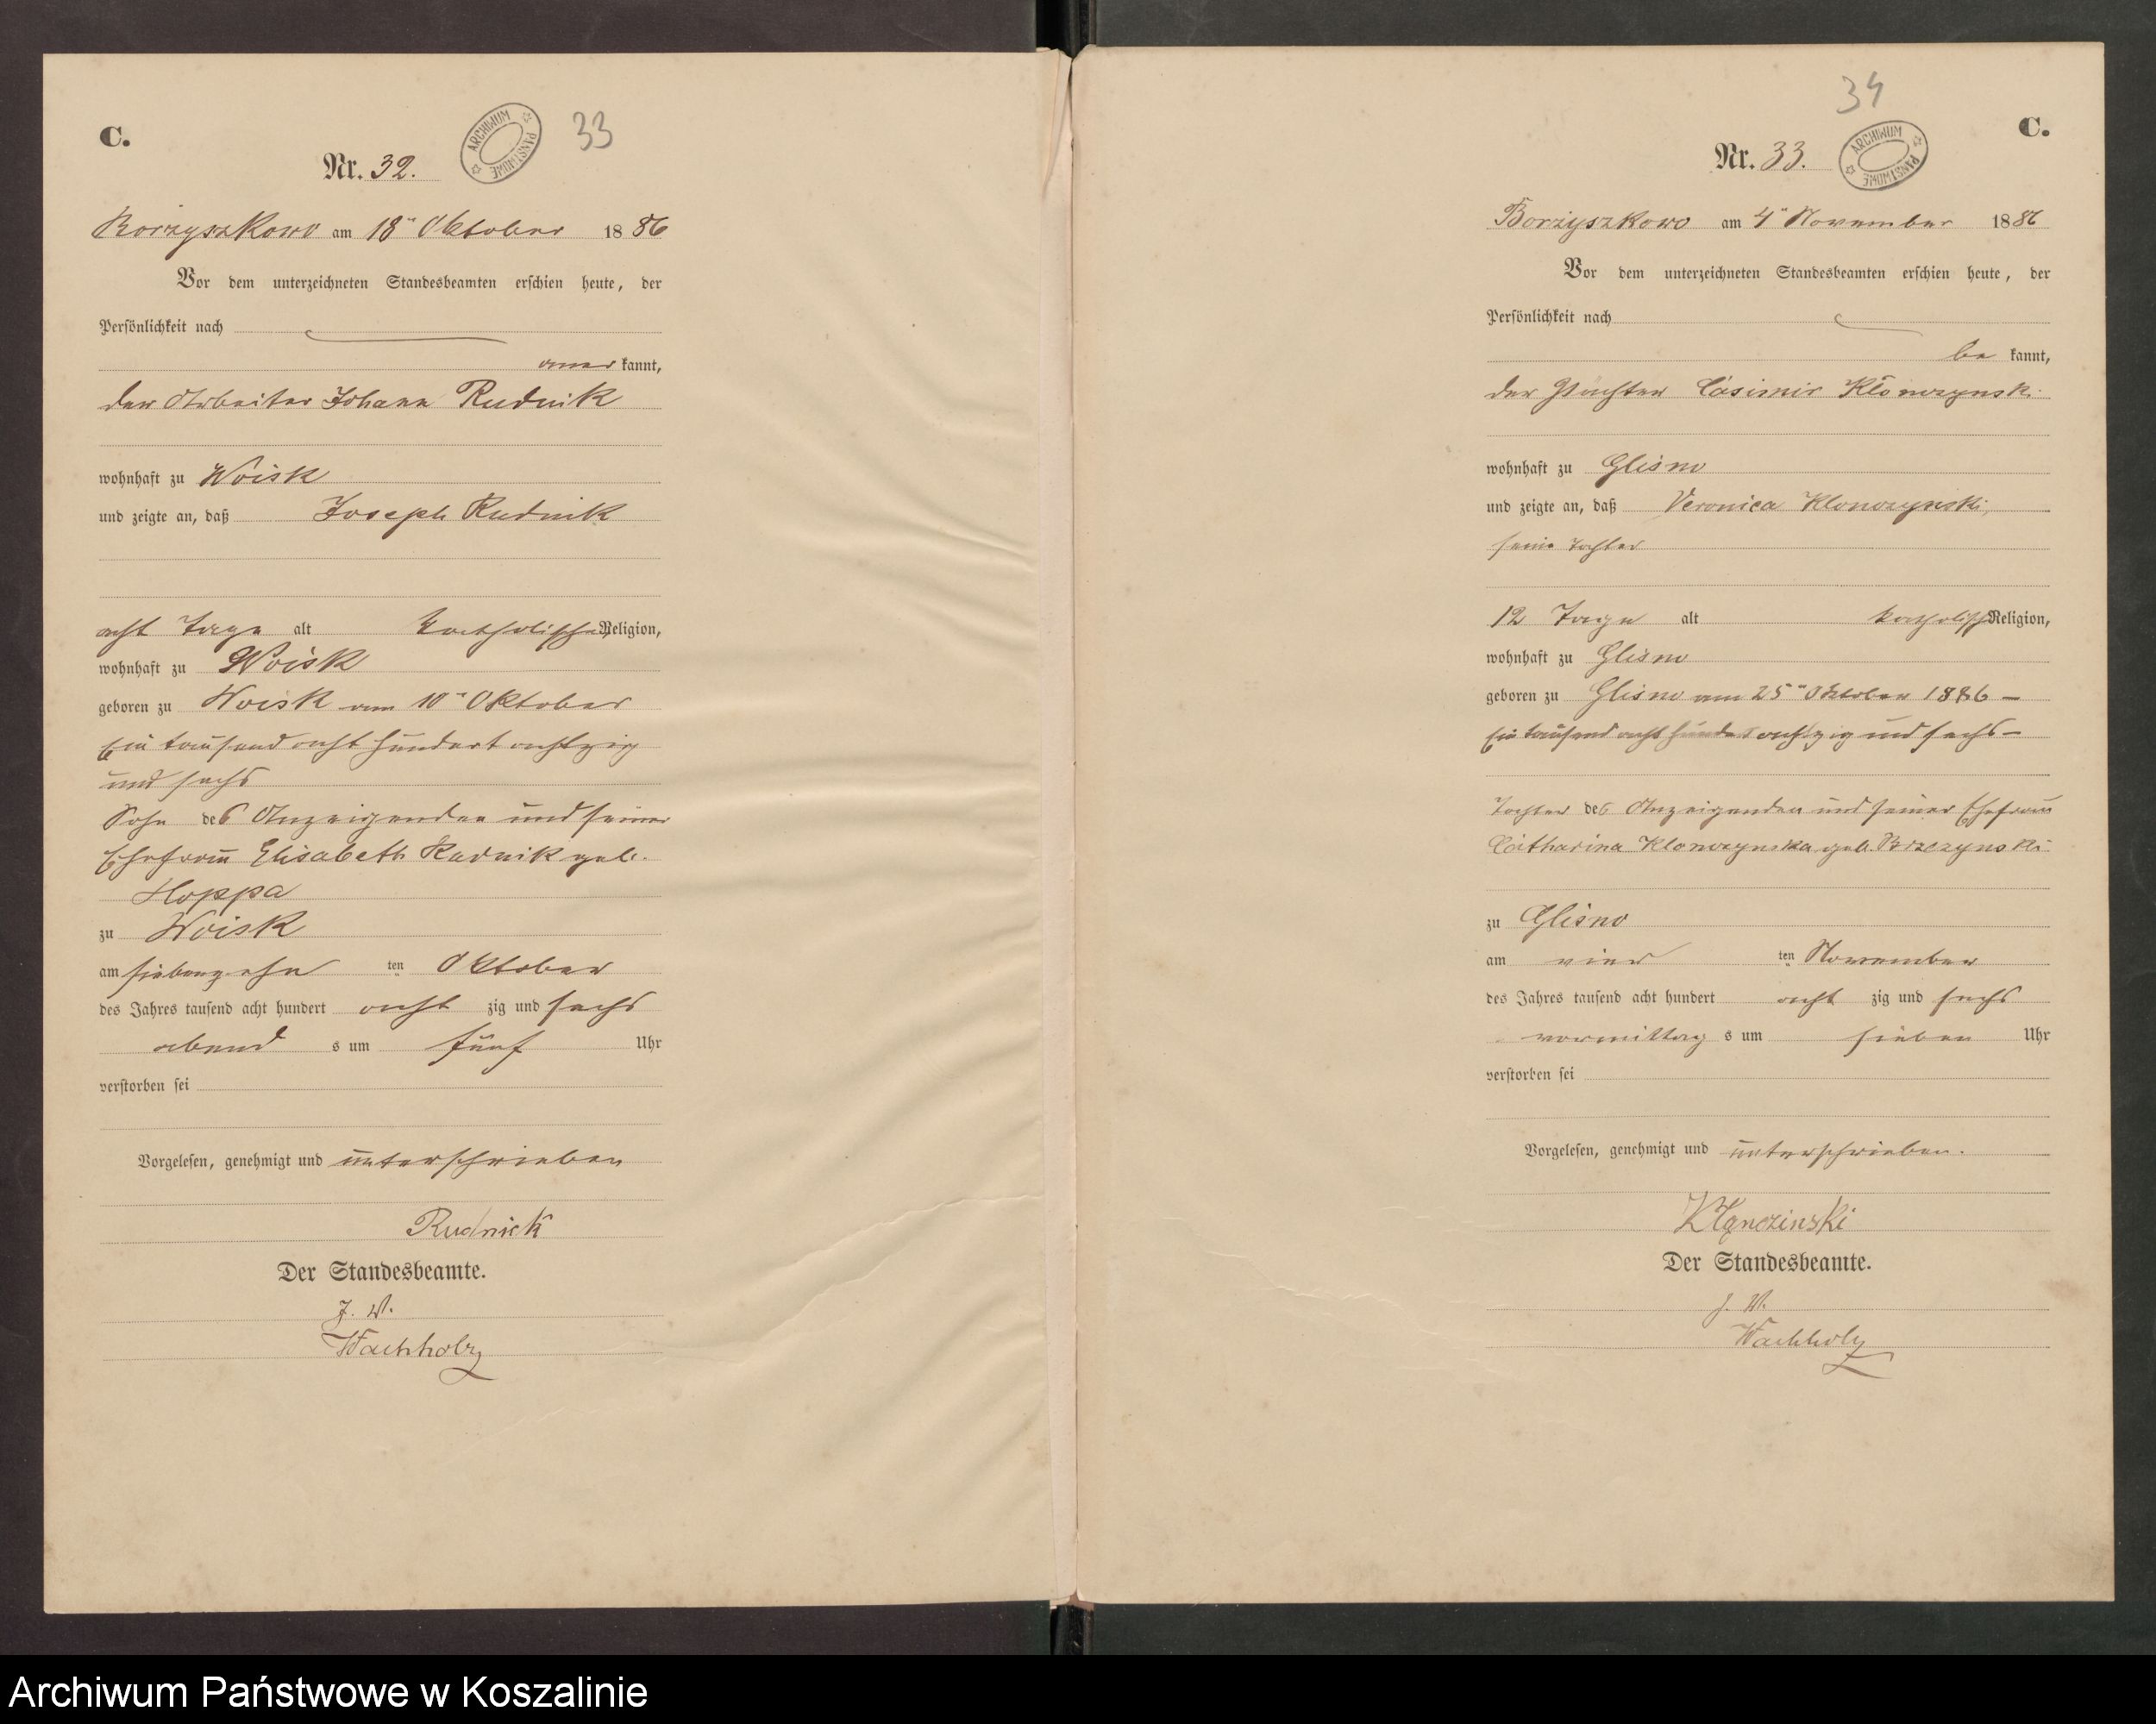 C.
ARCHIWUM PAŃSTWOWE
33
Nr. 32.
Borzyszkowo am 18ten Oktober 1886
Vor dem unterzeichneten Standesbeamten erschien heute, der
Persönlichkeit nach
anerkannt,
der Arbeiter Johann Rudnik
wohnhaft zu Woisk
und zeigte an, daß Joseph Rudnik
acht Tage alt katholischer Religion,
wohnhaft zu Woisk
geboren zu Woisk am 10ten Oktober
Ein tausend acht hundert achtzig
und sechs
Sohn des Anzeigenden und seiner
Ehefrau Elisabeth Rudnik geb.
Hoppa
zu Woisk
am siebenzehnten Oktober
des Jahres tausend acht hundert achtzig und sechs
abends um fünf Uhr
verstorben sei
Vorgelesen, genehmigt und unterschrieben
Rudnick
Der Standesbeamte.
J. V.
Wachholz
34
C.
Nr. 33.
ARCHIWUM PAŃSTWOWE
Borzyszkowo am 4ten November 1886
Vor dem unterzeichneten Standesbeamten erschien heute, der
Persönlichkeit nach
bekannt,
der Pächter Casimir Klonczynski
wohnhaft zu Glisno
und zeigte an, daß Veronica Klonczynski,
seine Tochter
12 Tage alt katholisch Religion,
wohnhaft zu Glisno
geboren zu Glisno am 25ten Oktober 1886 –
Ein tausend acht hundert achtzig und sechs –
Tochter des Anzeigenden und seiner Ehefrau
Catharina Klonczynska geb. Brzezynski
zu Glisno
am vierten November
des Jahres tausend acht hundert achtzig und sechs
vormittags um sieben Uhr
verstorben sei
Vorgelesen, genehmigt und unterschrieben.
Kląnczinski
Der Standesbeamte.
J. V.
Wachholz
Archiwum Państwowe w Koszalinie